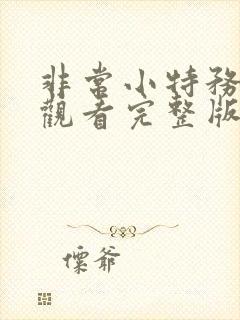 非常小特務
觀看完整版
爷